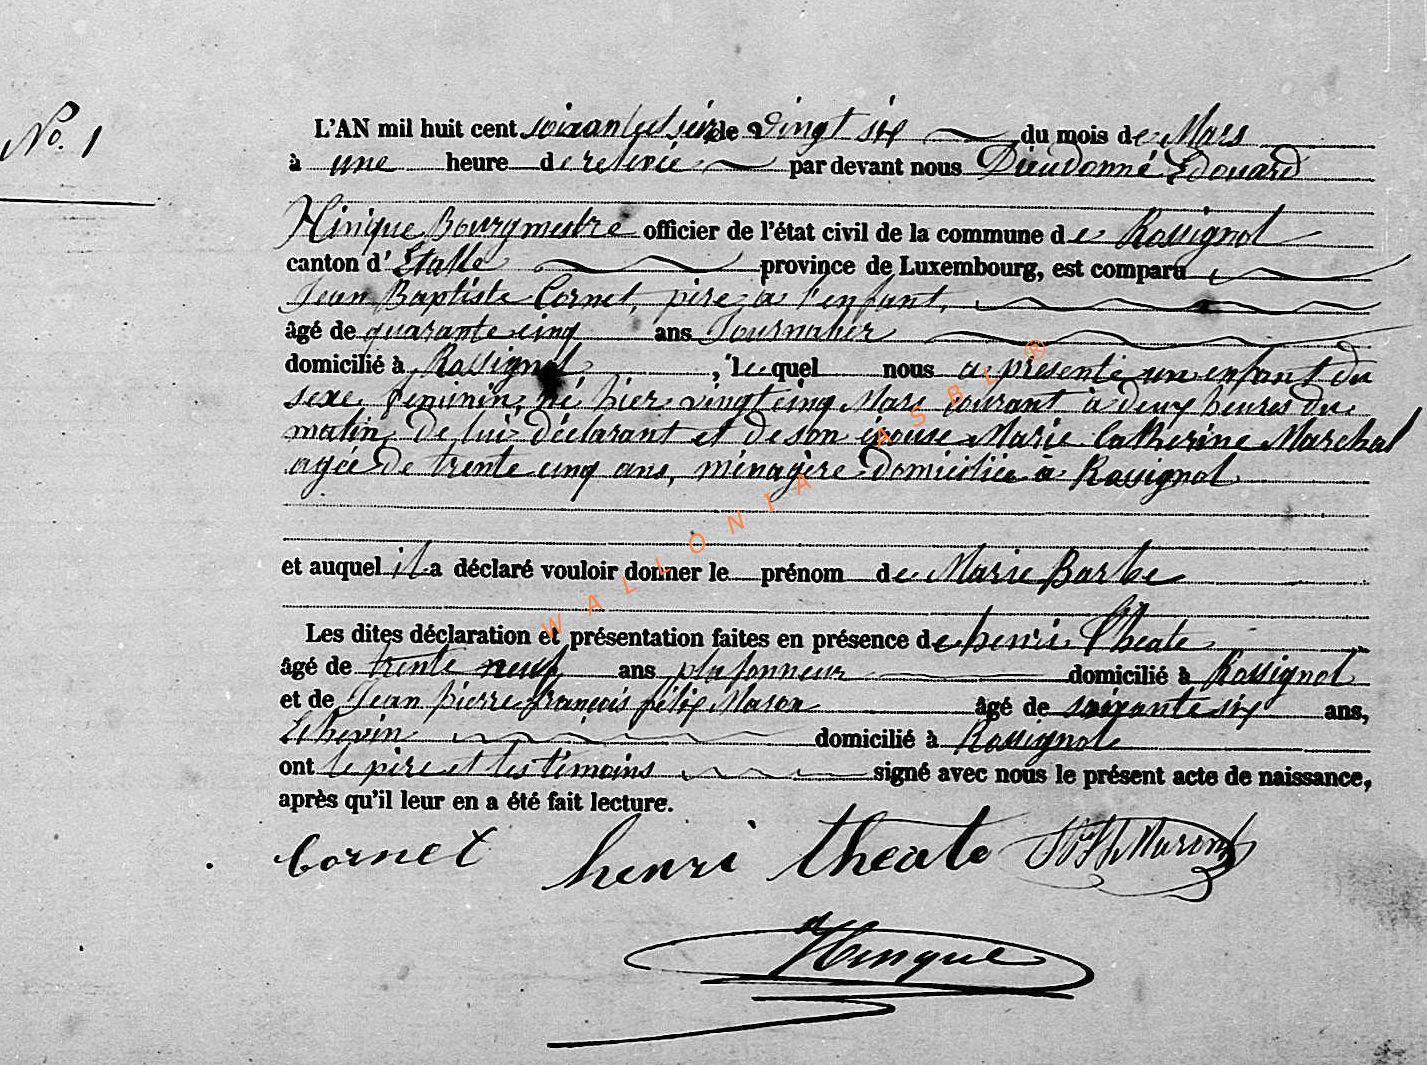 No. 1
L'AN mil huit cent soixante six le vingt six du mois de Mars
à une heure de relevée par devant nous Dieudonné Edouard
Hinique Bourgmestre officier de l'état civil de la commune de Rossignol
canton d'Etalle province de Luxembourg, est comparu
Jean Baptiste Cornet, père à l'enfant,
âgé de quarante cinq ans Journalier
domicilié à Rossignol, lequel nous a présenté un enfant du
sexe féminin, né hier vingt cinq Mars courant à deux heures du
matin, de lui déclarant et de son épouse Marie Catherine Marchal
agée de trente cinq ans, ménagère domiciliée à Rossignol
et auquel il a déclaré vouloir donner le prénom de Marie Barbe
Les dites déclaration et présentation faites en présence de henri Théate
âgé de trente neuf ans plafonneur domicilié à Rossignol
et de Jean pierre françois félix Mason âgé de soixante six ans,
Echevin domicilié à Rossignol
ont le père et les témoins signé avec nous le présent acte de naissance,
après qu'il leur en a été fait lecture.
Cornet henri theate Mason
Hinque
WALLONIA ASBL ®